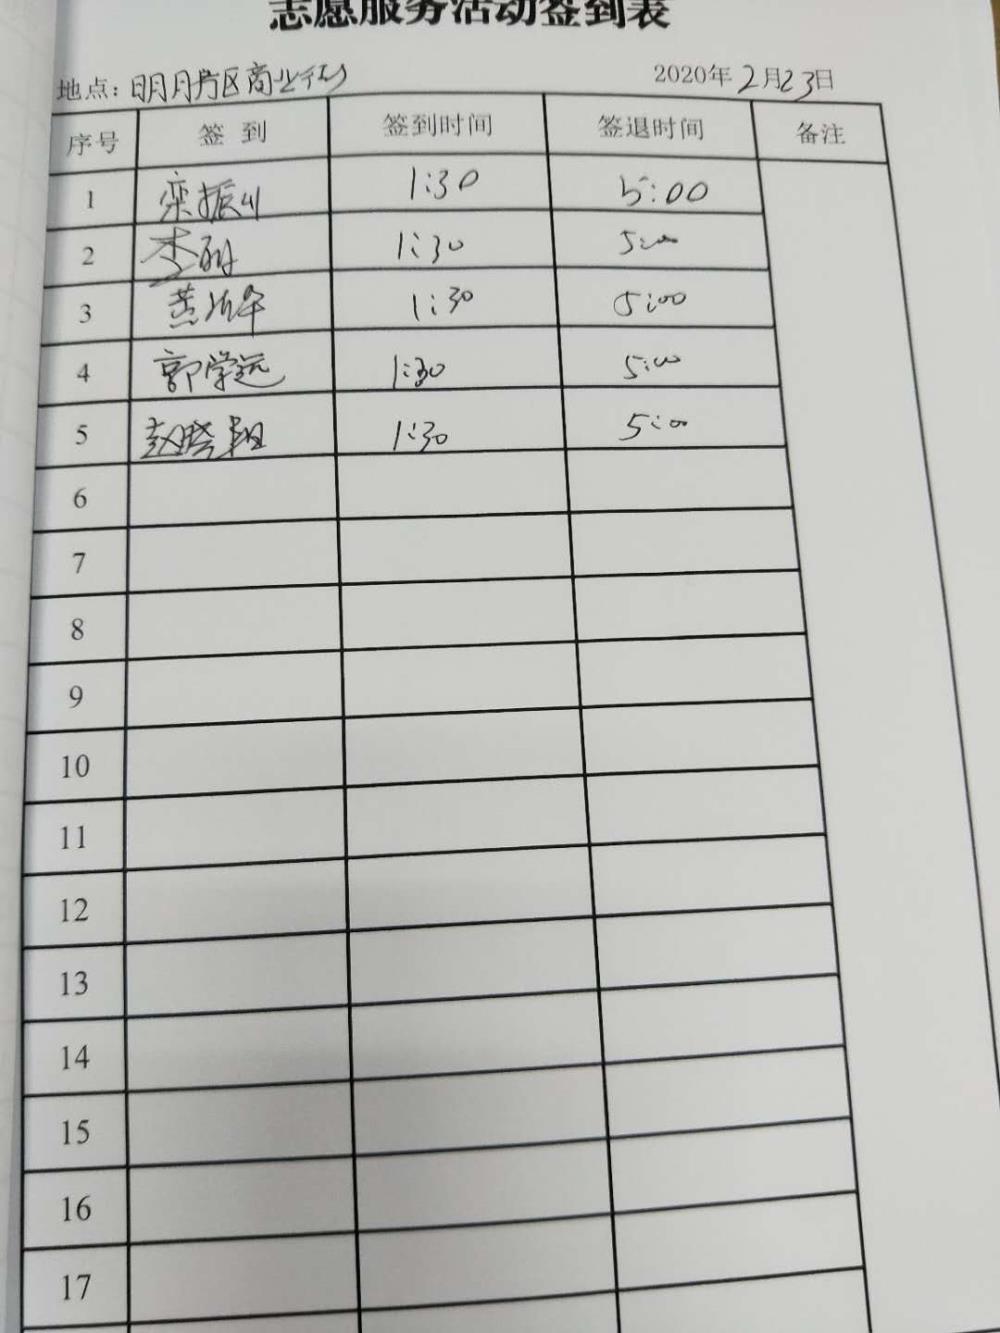 志愿服务活动签到表
地点：明月片区商业街 2020年2月23日
序号 签到 签到时间 签退时间 备注
1 栾振川 1:30 5:00
2 李 1:30 5:00
3 1:30 5:00
4 郭学远 1:30 5:00
5 赵晓 1:30 5:00
6
7
8
9
10
11
12
13
14
15
16
17